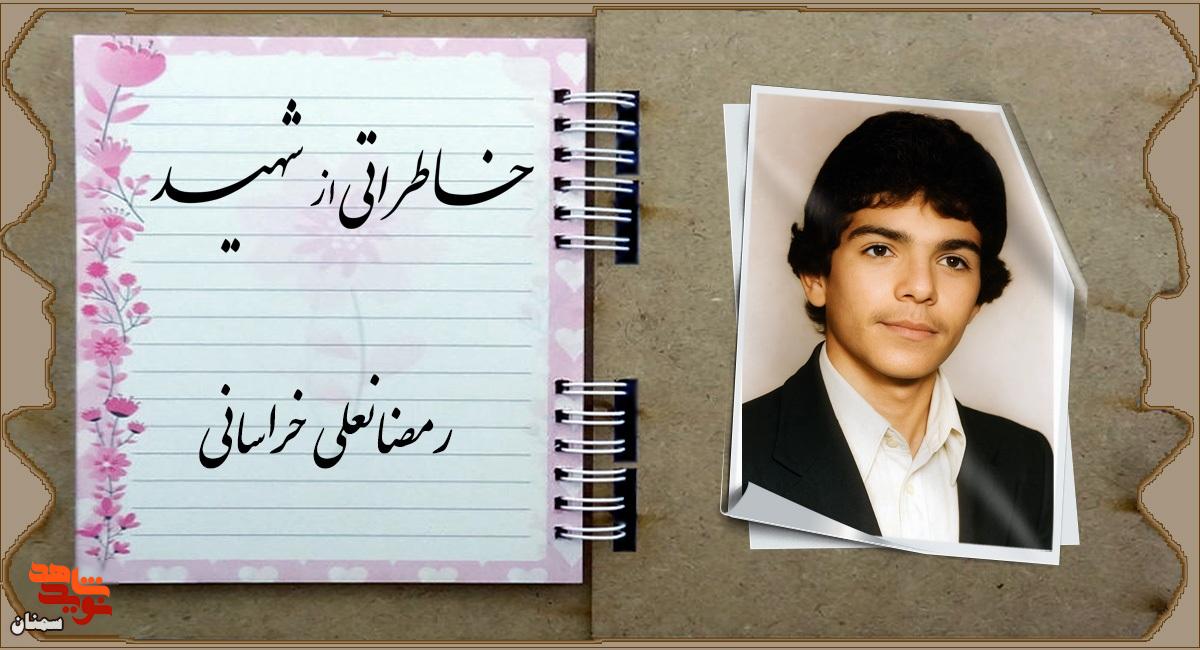 خاطراتی از شهید
رمضانعلی خراسانی
نوید شاهد
سمنان